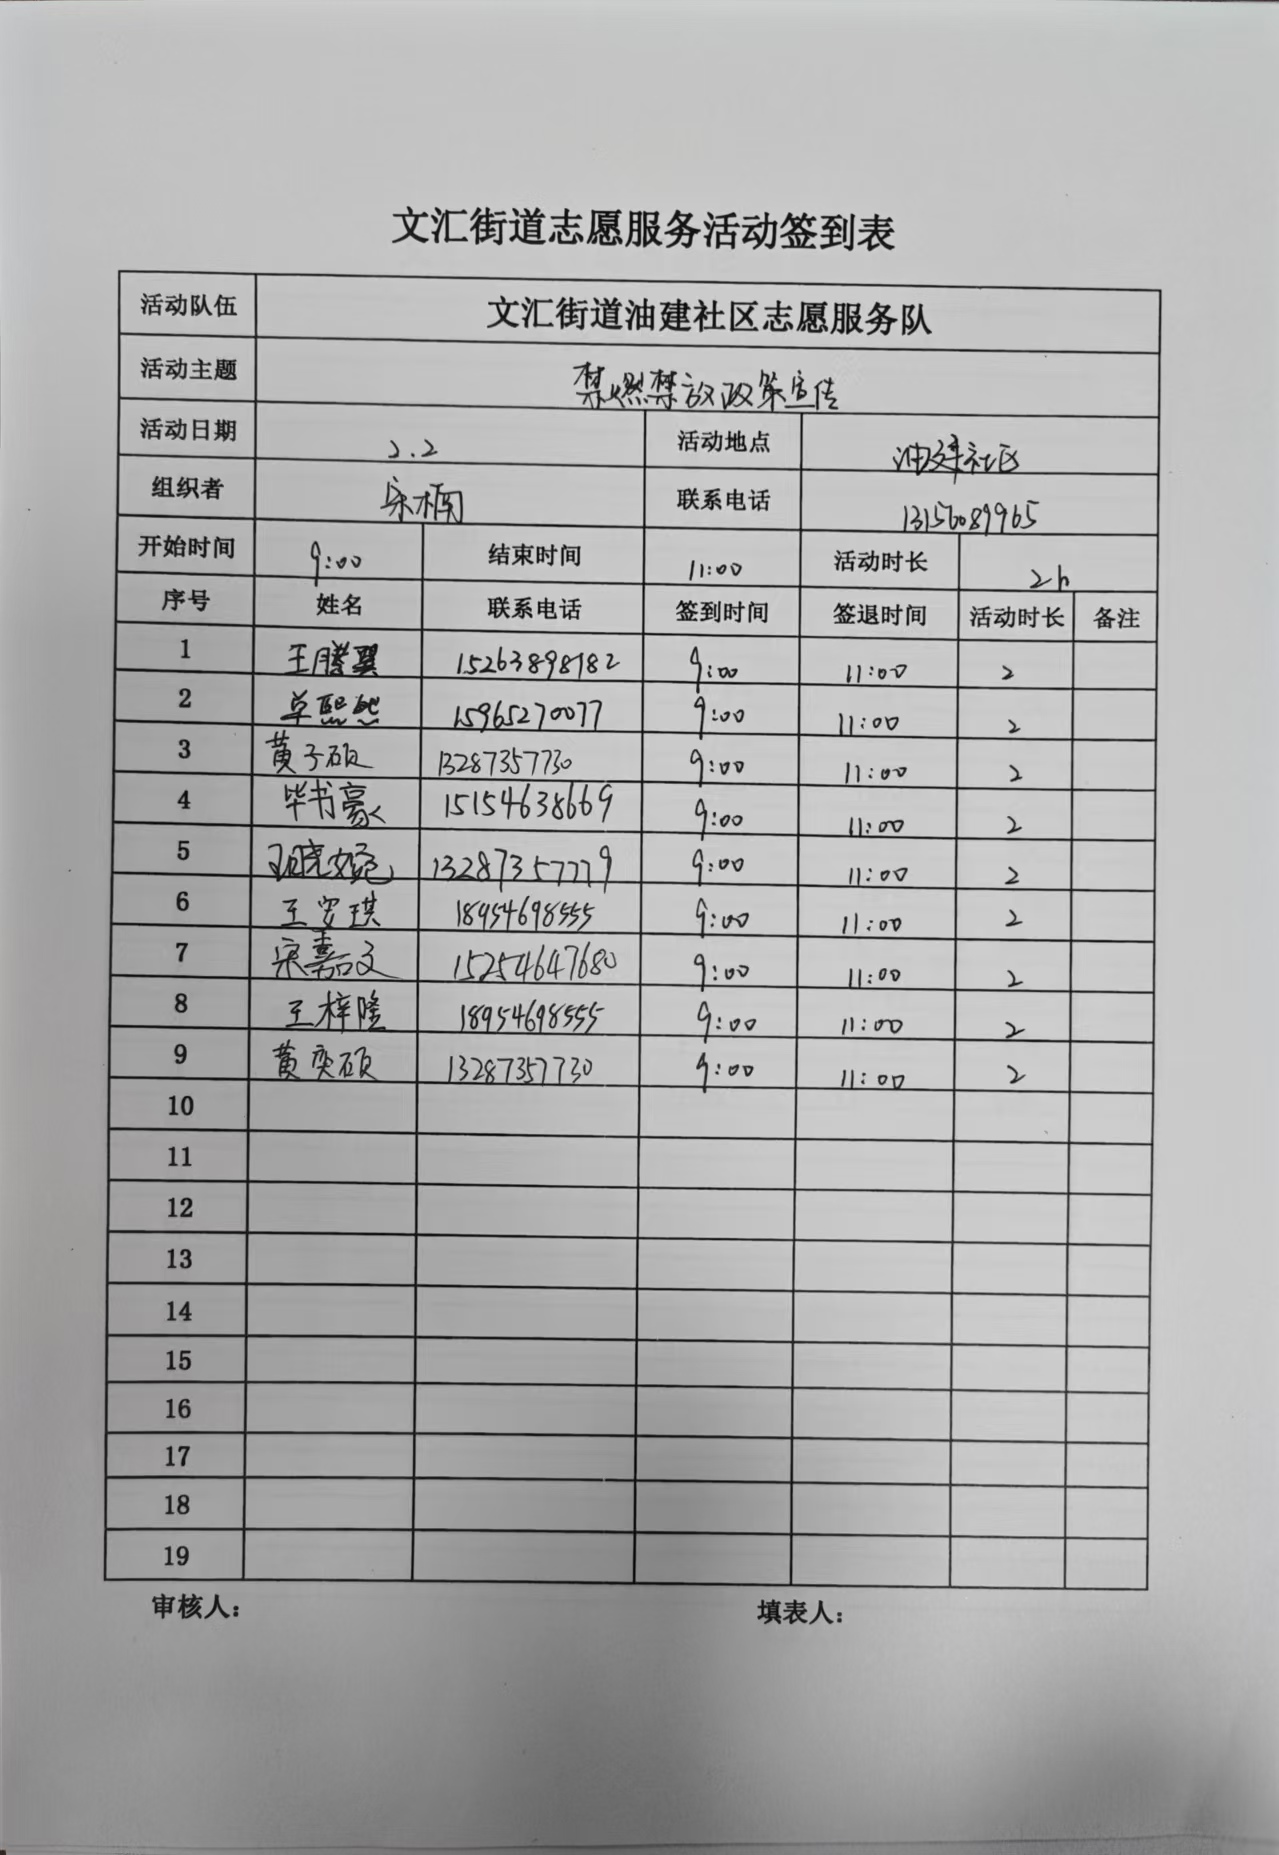 文汇街道志愿服务活动签到表
活动队伍 文汇街道油建社区志愿服务队
活动主题 禁燃禁放政策宣传
活动日期 2.2 活动地点 油建社区
组织者 宋楠 联系电话 13156089965
开始时间 9:00 结束时间 11:00 活动时长 2h
序号 姓名 联系电话 签到时间 签退时间 活动时长 备注
1 王腾翼 15263898182 9:00 11:00 2
2 卓熙然 15965270077 9:00 11:00 2
3 黄子硕 13287357730 9:00 11:00 2
4 毕书豪 15154638669 9:00 11:00 2
5 13287357779 9:00 11:00 2
6 王安琪 18954698555 9:00 11:00 2
7 宋嘉文 15254647680 9:00 11:00 2
8 王梓隆 18954698555 9:00 11:00 2
9 黄奕硕 13287357730 9:00 11:00 2
10
11
12
13
14
15
16
17
18
19
审核人： 填表人：